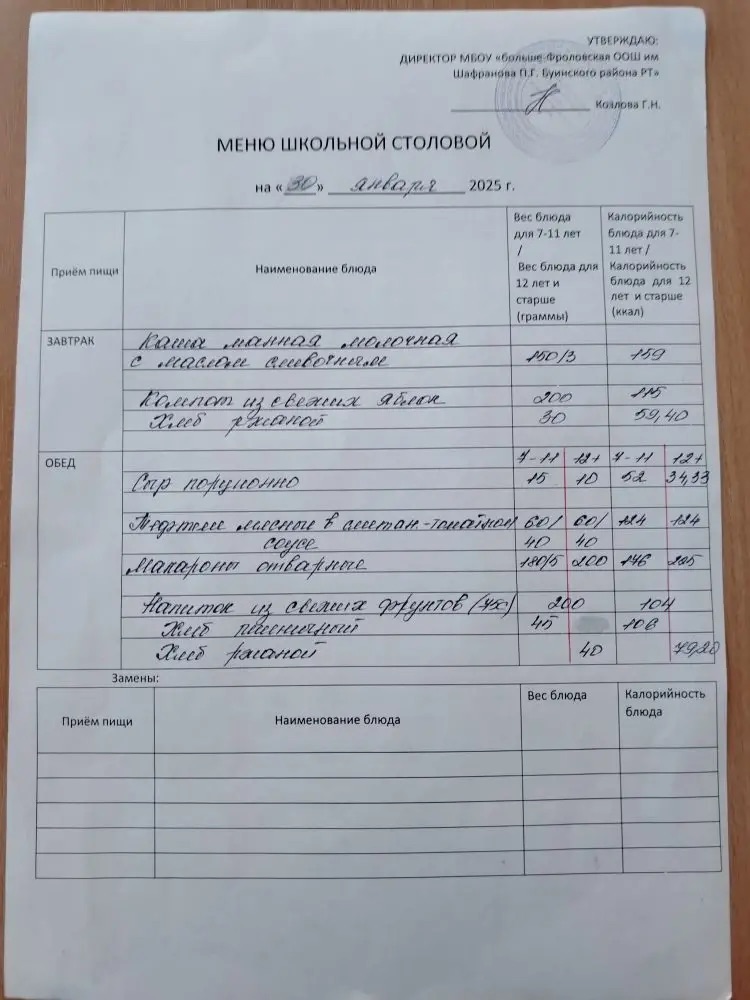 УТВЕРЖДАЮ:
ДИРЕКТОР МБОУ «Больше-Фроловская ООШ им
Шафранова П.Г. Буинского района РТ»
Козлова Г.Н.
МЕНЮ ШКОЛЬНОЙ СТОЛОВОЙ
на «30» января 2025 г.
Приём пищи
Наименование блюда
Вес блюда
для 7-11 лет
/
Вес блюда для
12 лет и
старше
(граммы)
Калорийность
блюда для 7-
11 лет /
Калорийность
блюда для 12
лет и старше
(ккал)
ЗАВТРАК
Каша манная молочная
с маслом сливочным 150/3 159
Компот из свежих яблок 200 115
Хлеб ржаной 30 59,40
ОБЕД 7-11 12+ 7-11 12+
Сыр порционно 15 10 52 34,33
мясные в сметан.-томатном 60/ 60/ 124 124
соусе 40 40
Макароны отварные 180/5 200 176
Напиток из свежих фруктов 200 104
Хлеб пшеничный 45 106
Хлеб ржаной 40 79,20
Замены:
Приём пищи
Наименование блюда
Вес блюда
Калорийность
блюда